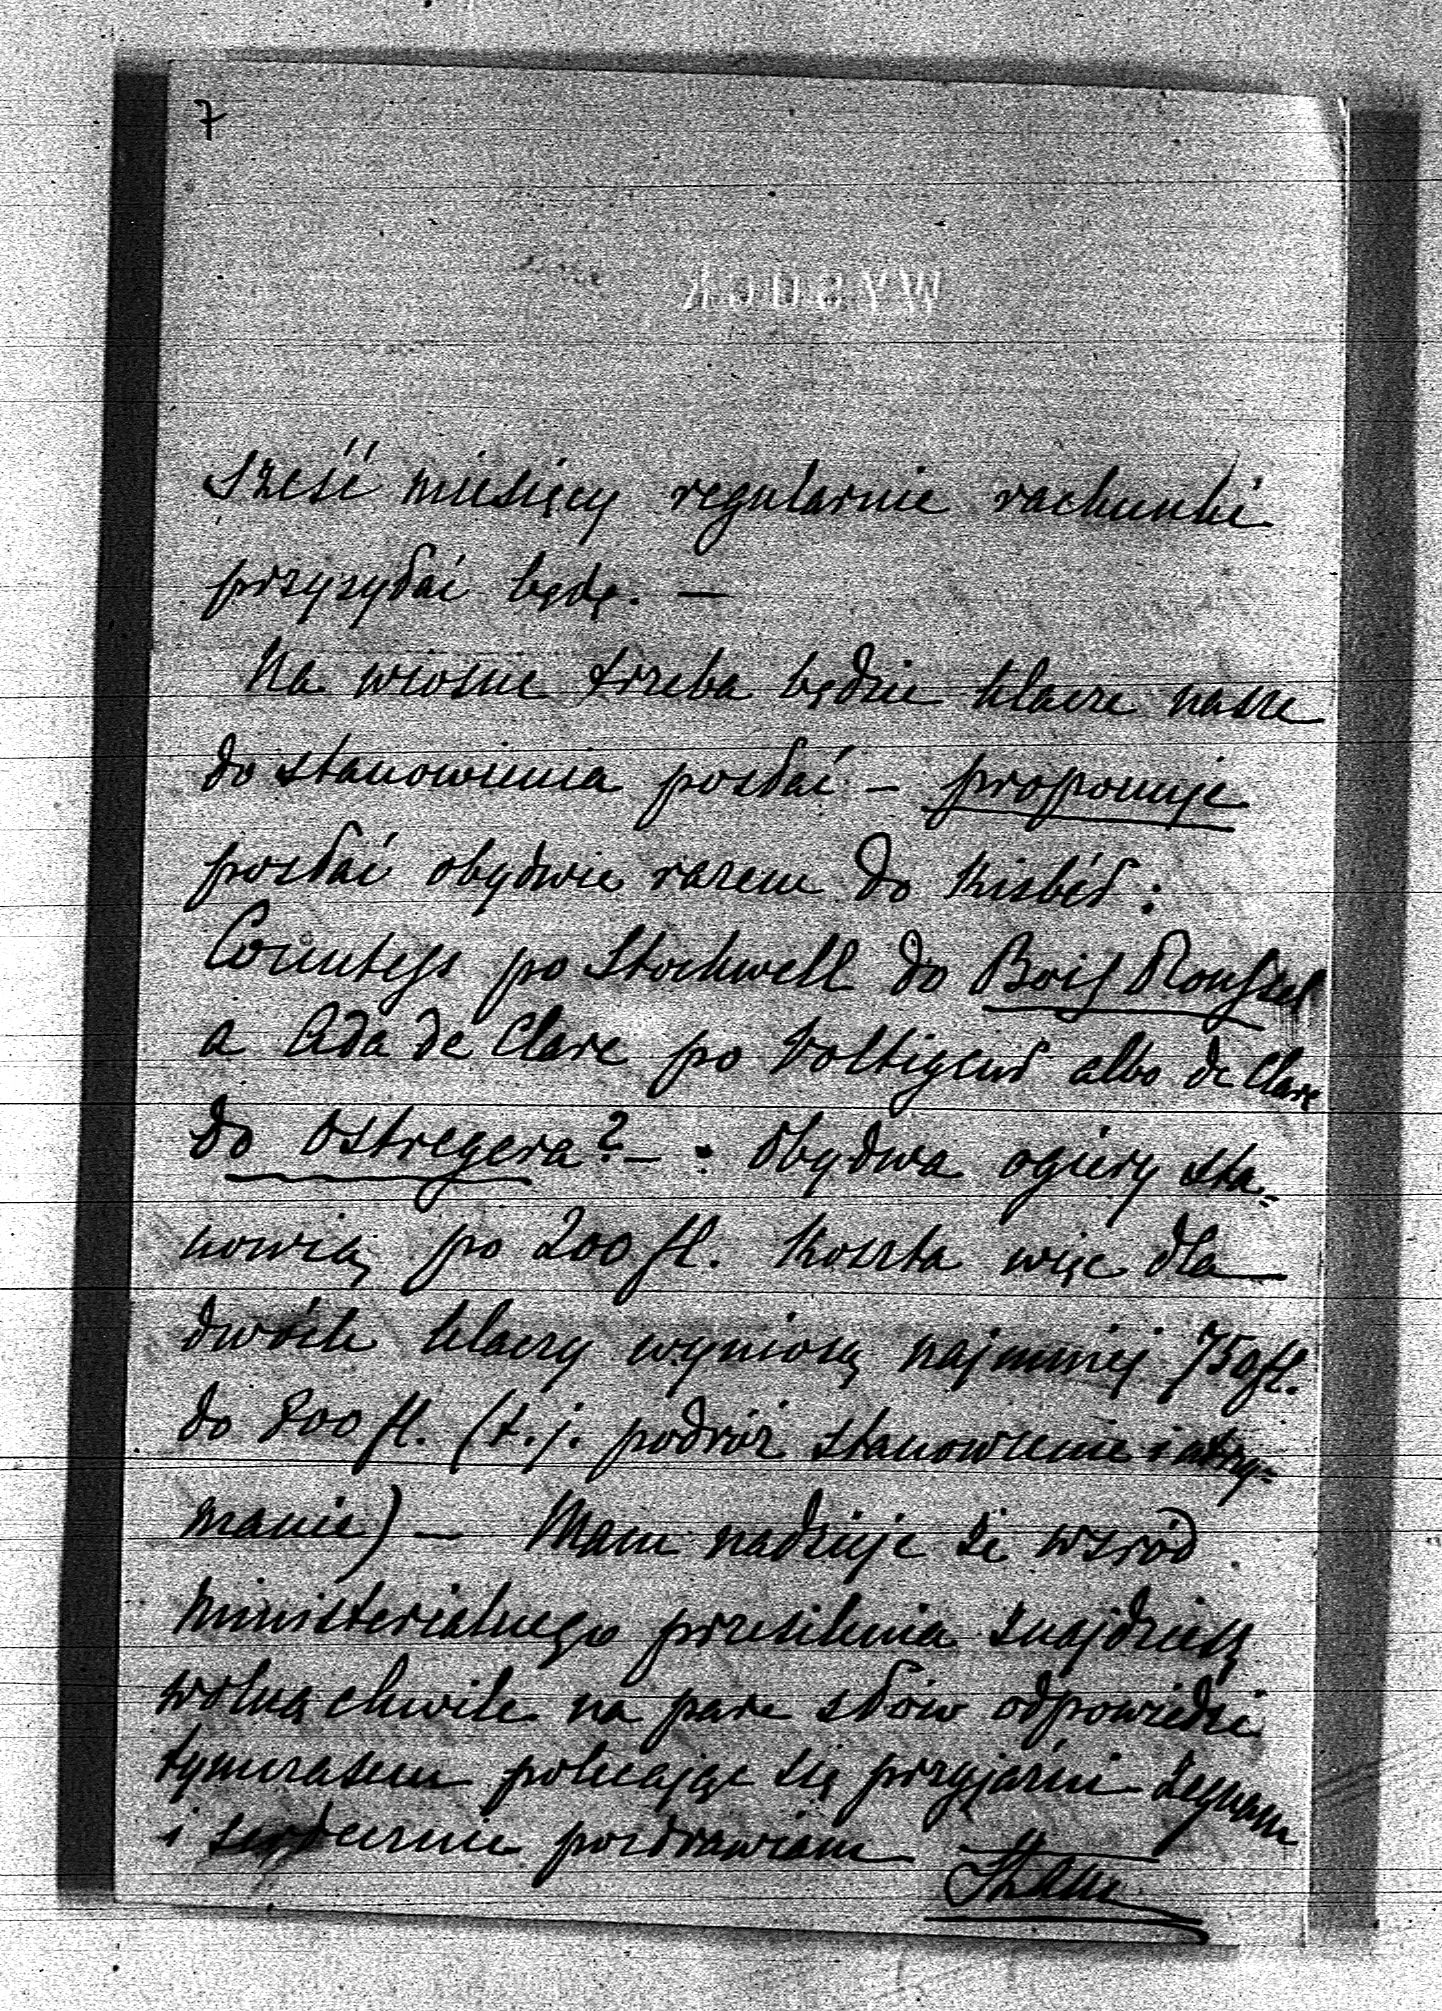 7
WYSOCK
sześć miesięcy regularnie rachunki
przysyłać będę. —
Na wiosnę trzeba będzie klacze nasze
do stanowienia posłać — proponuję
posłać obydwie razem do Kisbér:
Countess po Stockwell do Bois Roussel
a Ada de Clare po Voltigeur albo de Clare
do Ostregera? — • Obydwa ogiery sta=
nowią po 200 fl. Koszta więc dla
dwóch klaczy wyniosą najmniej 750 fl.
do 800 fl. (t. j. podróż stanowienie i utrzy=
manie) — Mam nadzieję że wśród
ministerialnego przesilenia znajdziesz
wolną chwilę na parę słów odpowiedzi
tymczasem polecając się przyjaźni żegnam
i serdecznie pozdrawiam